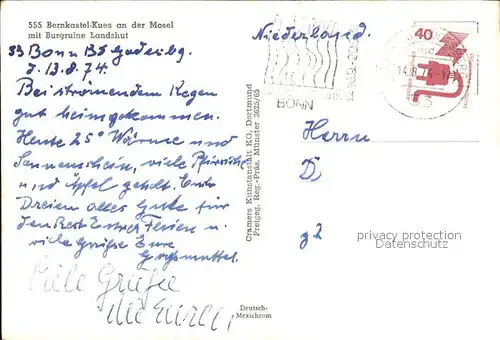 555 Bernkastel-Kues an der Mosel
mit Burgruine Landshut
53 Bonn Bd Godesbg.
d. 13.8.74.
Bei strömendem Regen
gut heimgekommen.
Heute 25° Wärme und
Sonnenschein, viele Pfirsiche
und Äpfel geholt. Euch
Dreien alles Gute für
den Rest Eurer Ferien u.
viele Grüße Eure
Großmutter.
Viele Grüße
Cramers Kunstanstalt KG, Dortmund
Freigeg. Reg.-Präs. Münster 3625/65
Deutsch-
Mexichrom
Niederland.
BONN
14.8.74
40
Herrn
D
g2
privacy protection
Datenschutz